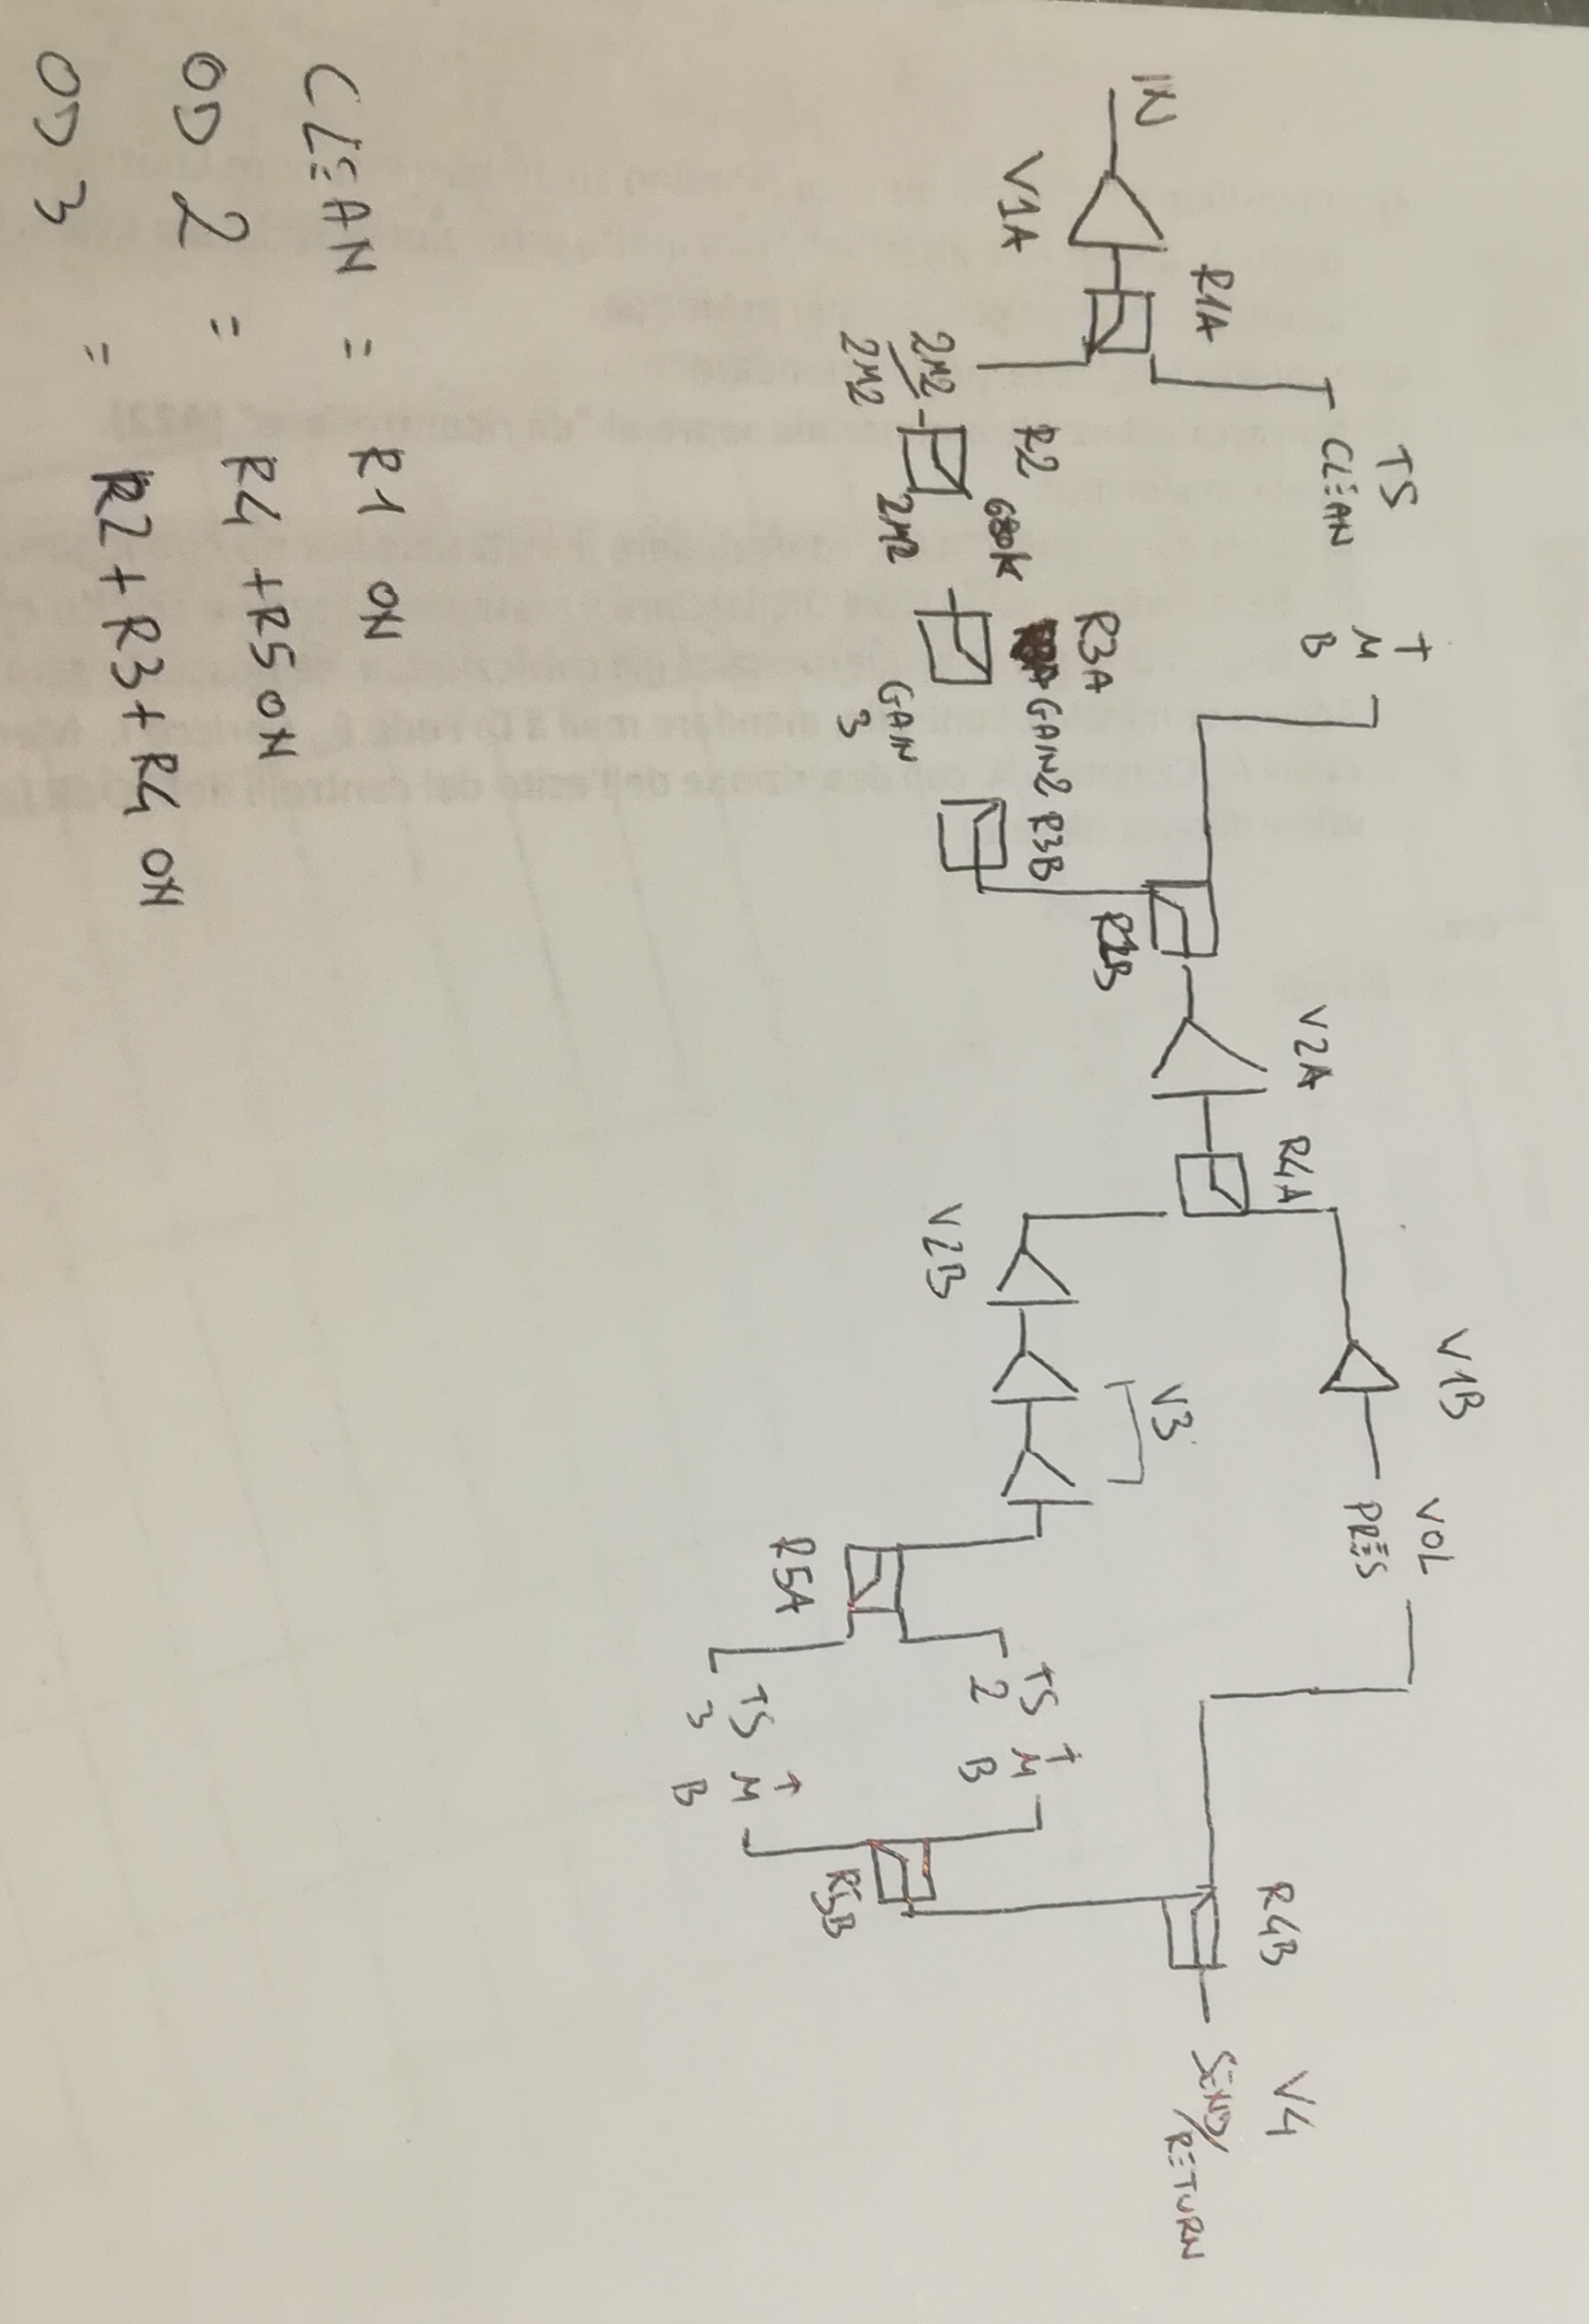 IN
V1A
R1A
TS
CLEAN
T
M
B
2M2
2M2
R2
680K
2M2
R3A
GAIN2
GAIN
3
R3B
V2A
R4A
V1B
VOL
PRES
V2B
V3
R5A
TS
2
T
M
B
TS
3
T
M
B
R5B
R4B
V4
SEND/
RETURN
CLEAN = R1 ON
OD 2 = R4 + R5 ON
OD 3 = R2 + R3 + R4 ON